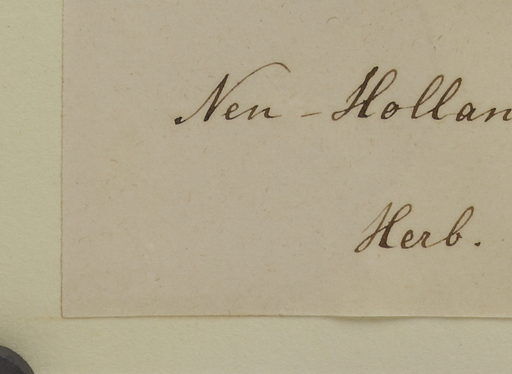 Neu-Hollan
Herb.